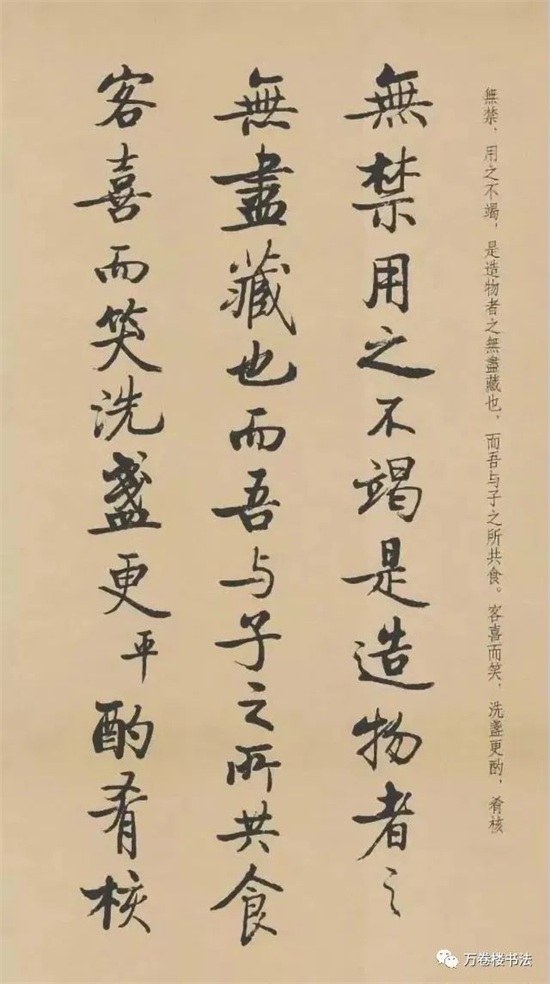 無禁，用之不竭，是造物者之無盡藏也，而吾与子之所共食。客喜而笑，洗盞更酌，肴核
無禁用之不竭是造物者之
無盡藏也而吾与子之所共食
客喜而笑洗盞更平酌肴核
万卷楼书法